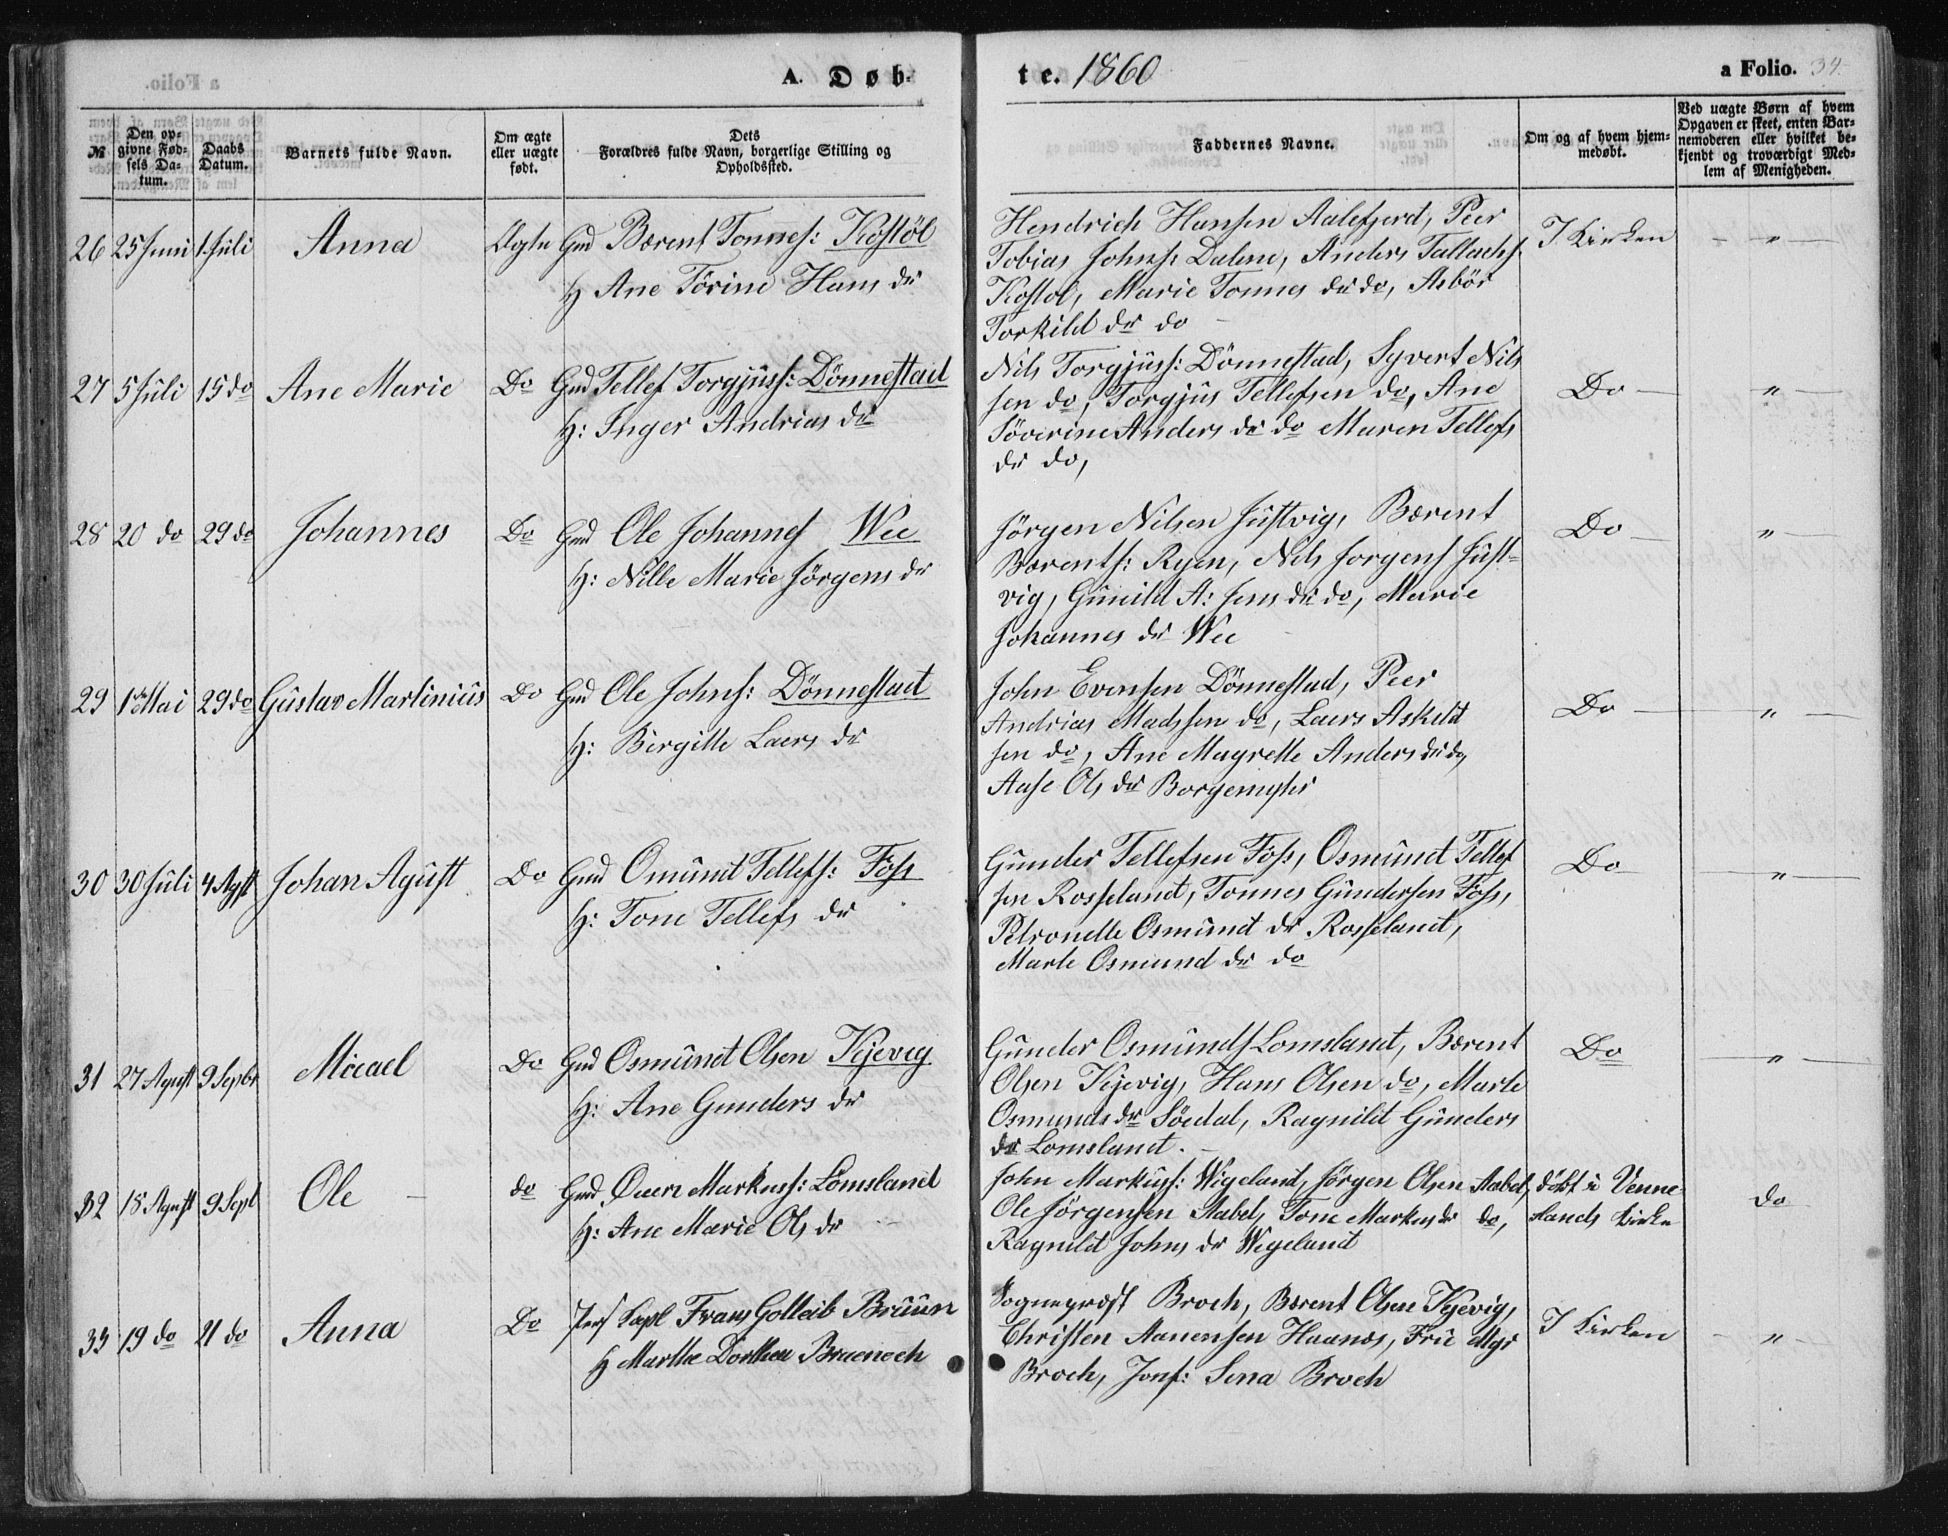 a Folio.
A. Døb-
te. 1860
a Folio. 34.
№
Den op-
givne Fød-
sels Da-
tum.
Daabs
Datum.
Barnets fulde Navn.
Om ægte
eller uægte
født.
Dets
Forældres fulde Navn, borgerlige Stilling og
Opholdssted.
Faddernes Navne.
Om og af hvem hjem-
medøbt.
Ved uægte Børn af hvem
Opgaven er skeet, enten Bar-
nemoderen eller hvilket be-
kjendt og troværdigt Med-
lem af Menigheden.
26 25 Juni 1. Juli Anna Ægte Gmd Bærent Tonnes: Kostöl
H Ane Törine Hans dr
Hendrich Hansen Aalefjerd, Peer
Tobias Johns: Dalene, Anders Tallachs:
Kostol, Marie Tonnes dr do, Asbör
Torkild dr do
I Kirken - " -
27 5 Juli 15 do Ane Marie Do Gmd Tellef Torgjüss: Dönnestad
H: Inger Andrias dr
Nils Torgjüss: Dönnestad, Syvert Nils
sen do, Torgjüs Tellefsen do, Ane
Söverine Anders dr do Maren Tellefs
dr do,
Do - " -
28 20 do 29 do Johannes Do Gmd Ole Johannes Wee
H: Nille Marie Jörgens dr
Jörgen Nilsen Jüstvig, Bærent
Bærents: Ryen, Nils Jorgens Jüst-
vig, Günild A: Jens dr do, Marie
Johannes dr Wee
Do - " -
29 1ste Mai 29 do Güstav Martiniüs Do Gmd Ole Johns: Dönnestad
H: Birgitte Laers dr
John Evensen Dönnestad, Peer
Andrias Madssen do, Laers Askild
sen do, Ane Magrette Anders dr do,
Aase Ols dr Borgemyhr
Do - " -
30 30 Juli 4 Agst Johan Agüst Do Gmd Omünd Tellefs: Foss
H: Tone Tellefs dr
Gunder Tellefsen Foss, Osmünd Tellef
sen Rosseland, Tonnes Gündersen Foss,
Petronelle Osmünd dr Rosseland,
Marte Osmund dr do
Do - " -
31 27 Agust 9 Septbr Micael Do Gmd Osmünd Olsen Kjevig
H: Ane Gunders dr
Günder Osmünds Lomsland, Bærent
Olsen Kjevig, Hans Olsen do, Marte
Osmunds dr Söedal, Ragnild Günders
dr Lomsland.
Do - " -
32 18 Agust 9 Sept Ole do Gmd Ouen Markuss: Lomsland
H: Ane Marie Ols dr
John Markuss: Wigeland, Jörgen Olsen Aabel,
Ole Jörgensen Aabel, Tone Markus dr do,
Ragnild Johns dr Wigeland
döbt i Venne
slands Kirke
do
33 19 do 21 do Anna Do Pers Capl Frans Gotleib Bruun
H Marthe Dorthea Bruenech
Sogneprost Broch, Bærent Olsen Kjevig,
Christen Aanensen Haanes, Frue Myr
Broch, Jonf: Sena Broch
I Kirken - " -